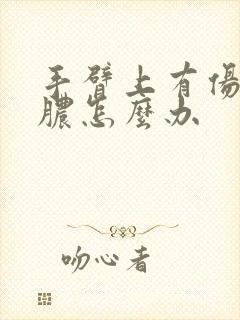 手臂上有傷
膿怎麼办
吻心者